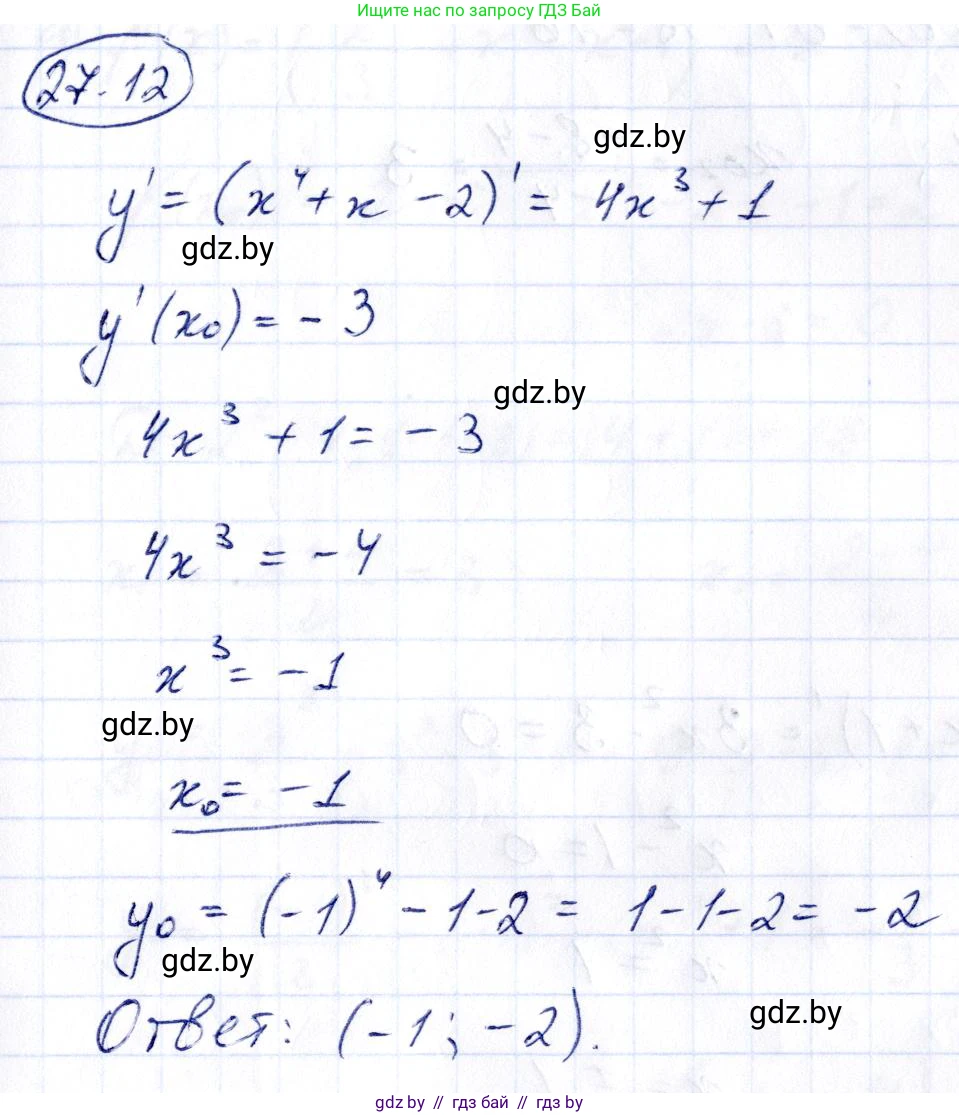 Ищите нас по запросу ГДЗ Бай
27.12
gdz.by
y' = (x⁴ + x - 2)' = 4x³ + 1
gdz.by
y'(x₀) = - 3
gdz.by
4x³ + 1 = - 3
4x³ = - 4
x³ = - 1
gdz.by
x₀ = - 1
y₀ = (-1)⁴ - 1 - 2 = 1 - 1 - 2 = - 2
gdz.by
Ответ: (-1; -2).
gdz.by
gdz.by // гдз бай // гдз by